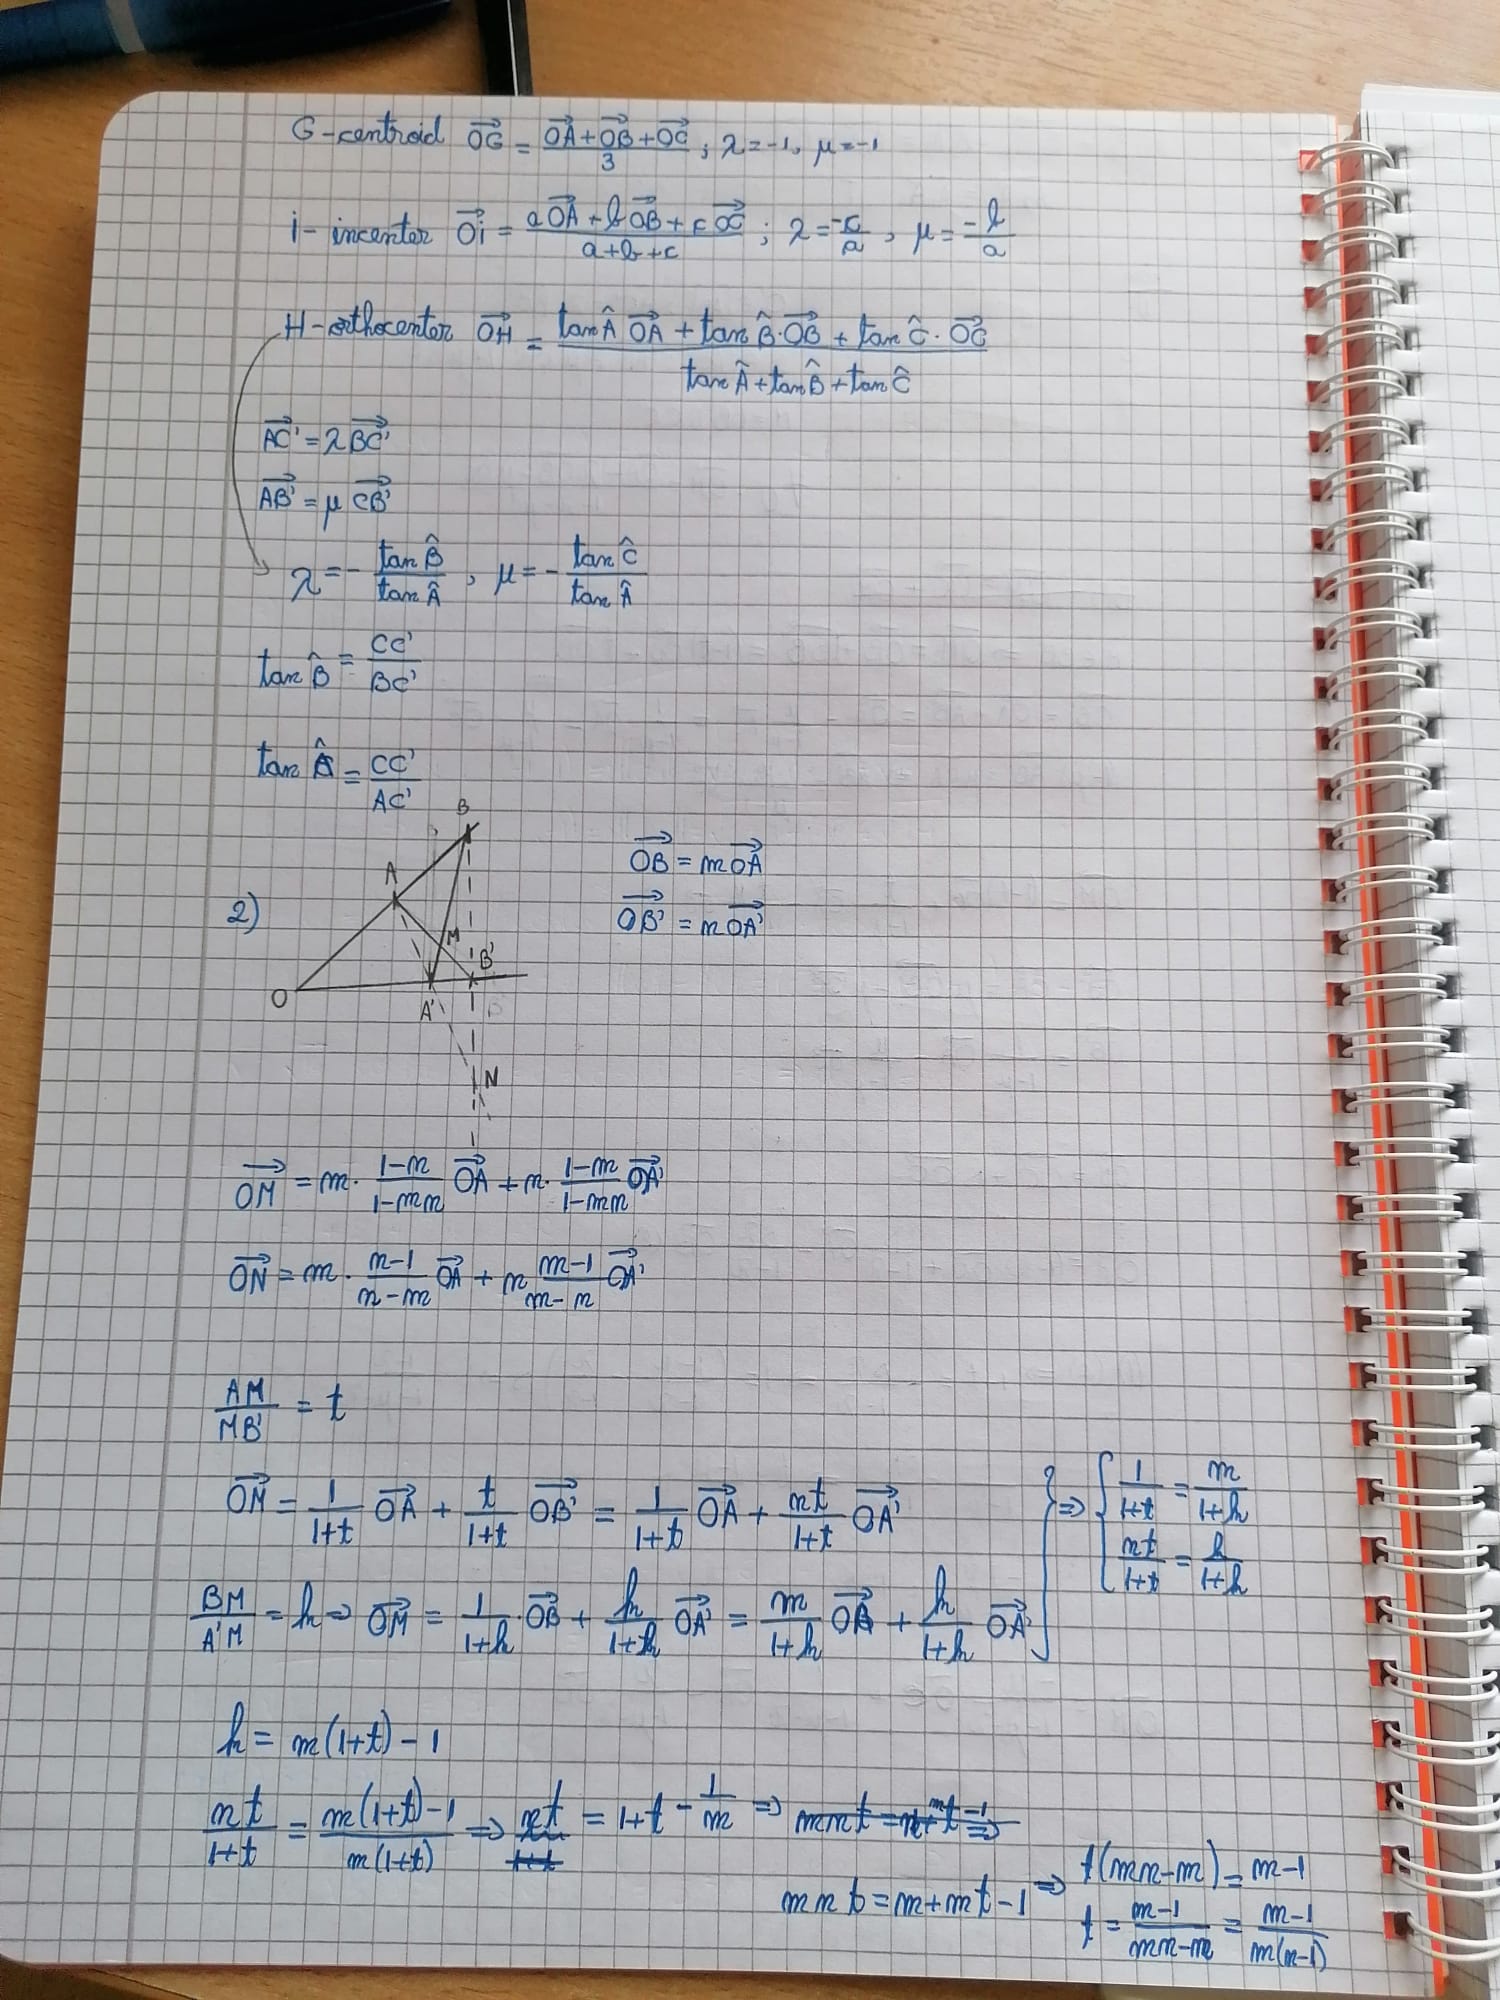 G-centroid \overrightarrow{OG} = \frac{\overrightarrow{OA}+\overrightarrow{OB}+\overrightarrow{OC}}{3}; λ=-1, μ=-1
i-incenter \overrightarrow{Oi} = \frac{a\overrightarrow{OA}+b\overrightarrow{OB}+c\overrightarrow{OC}}{a+b+c}; λ=\frac{-c}{a}, μ=\frac{-b}{a}
H-orthocenter \overrightarrow{OH} = \frac{tan Â \overrightarrow{OA} + tan B̂·\overrightarrow{OB} + tan Ĉ·\overrightarrow{OC}}{tan Â+tan B̂+tan Ĉ}
\overrightarrow{AC'} = λ\overrightarrow{BC'}
\overrightarrow{AB'} = μ\overrightarrow{CB'}
λ = -\frac{tan B̂}{tan Â}, μ = -\frac{tan Ĉ}{tan Â}
tan B̂ = \frac{CC'}{BC'}
tan Â = \frac{CC'}{AC'}
B
\overrightarrow{OB} = m\overrightarrow{OA}
A
2)
\overrightarrow{OB'} = n\overrightarrow{OA'}
M
B'
O
A'
N
\overrightarrow{OM} = m·\frac{1-n}{1-mn}\overrightarrow{OA} + n·\frac{1-m}{1-mn}\overrightarrow{OA'}
\overrightarrow{ON} = m·\frac{n-1}{n-m}\overrightarrow{OA} + n\frac{m-1}{m-n}\overrightarrow{OA'}
\frac{AM}{MB'} = t
\overrightarrow{OM} = \frac{1}{1+t}\overrightarrow{OA} + \frac{t}{1+t}\overrightarrow{OB'} = \frac{1}{1+t}\overrightarrow{OA} + \frac{nt}{1+t}\overrightarrow{OA'}
\frac{BM}{A'M} = h ⇒ \overrightarrow{OM} = \frac{1}{1+h}·\overrightarrow{OB} + \frac{h}{1+h}\overrightarrow{OA'} = \frac{m}{1+h}\overrightarrow{OA} + \frac{h}{1+h}\overrightarrow{OA'}
} ⇒ { \frac{1}{1+t} = \frac{m}{1+h}
\frac{nt}{1+t} = \frac{h}{1+h}
h = m(1+t)-1
\frac{nt}{1+t} = \frac{m(1+t)-1}{m(1+t)} ⇒ nt = 1+t-\frac{1}{m} ⇒
mnt = m+mt-1 ⇒ t(mn-m) = m-1
t = \frac{m-1}{mn-m} = \frac{m-1}{m(n-1)}